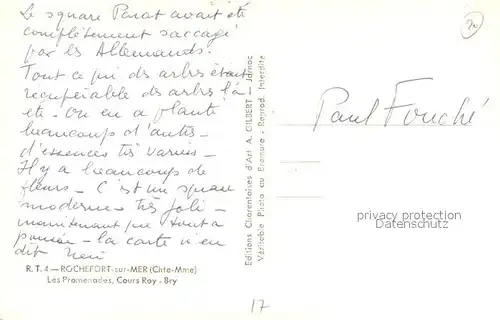 Le square Parat avait été
complètement saccagé
par les Allemands.
Tout ce qui des arbres était
récupérable des arbres l'a
été. On en a planté
beaucoup d'autres
d'essences très variées -
Il y a beaucoup de
fleurs - C'est un square
moderne très joli -
maintenant que tout a
poussé - la carte n'en
dit rien
R. T. 4 — ROCHEFORT-sur-MER (Chte-Mme)
Les Promenades, Cours Roy - Bry
Editions Charentaises d'Art A. GILBERT - Jarnac
Véritable Photo au Bromure - Reprod. Interdite
Paul Fouché
privacy protection
Datenschutz
17